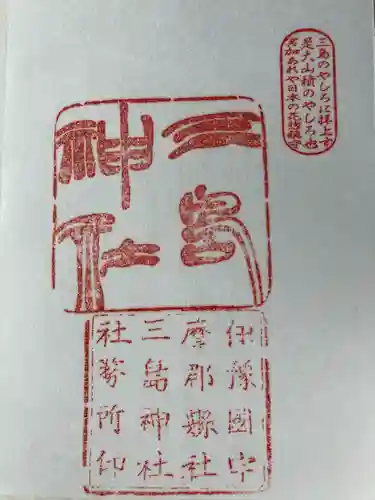 三島のやしろに拝上す
是大山積のやしろ也
名加あれや日本の花
三島
神社
伊豫國宇
摩郡縣社
三島神社
社務所印